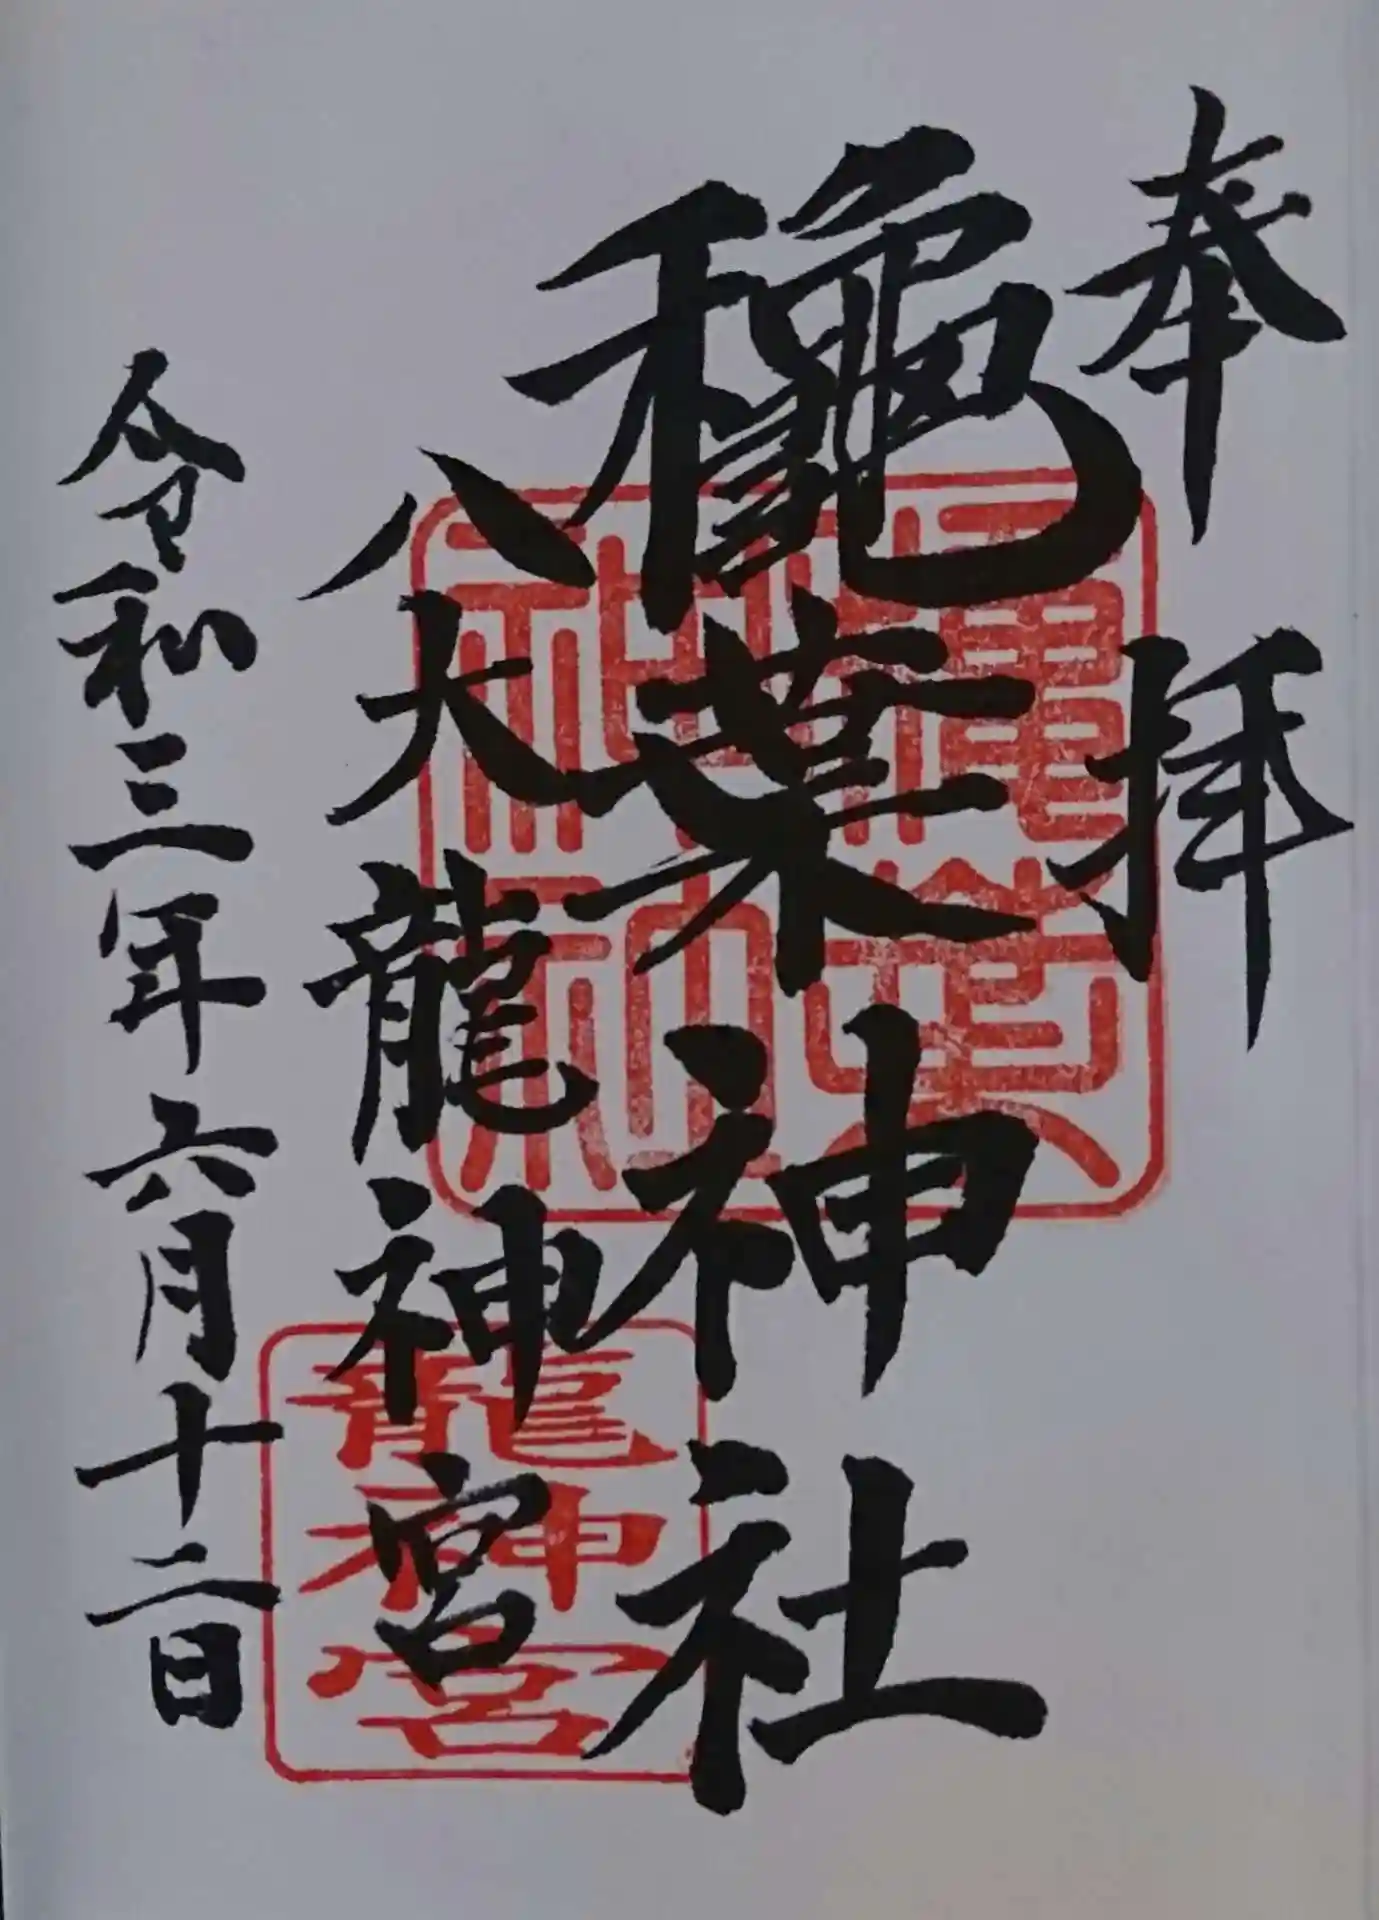 奉拝
龝葉神社
八大龍神宮
令和三年六月十二日
龍神宮